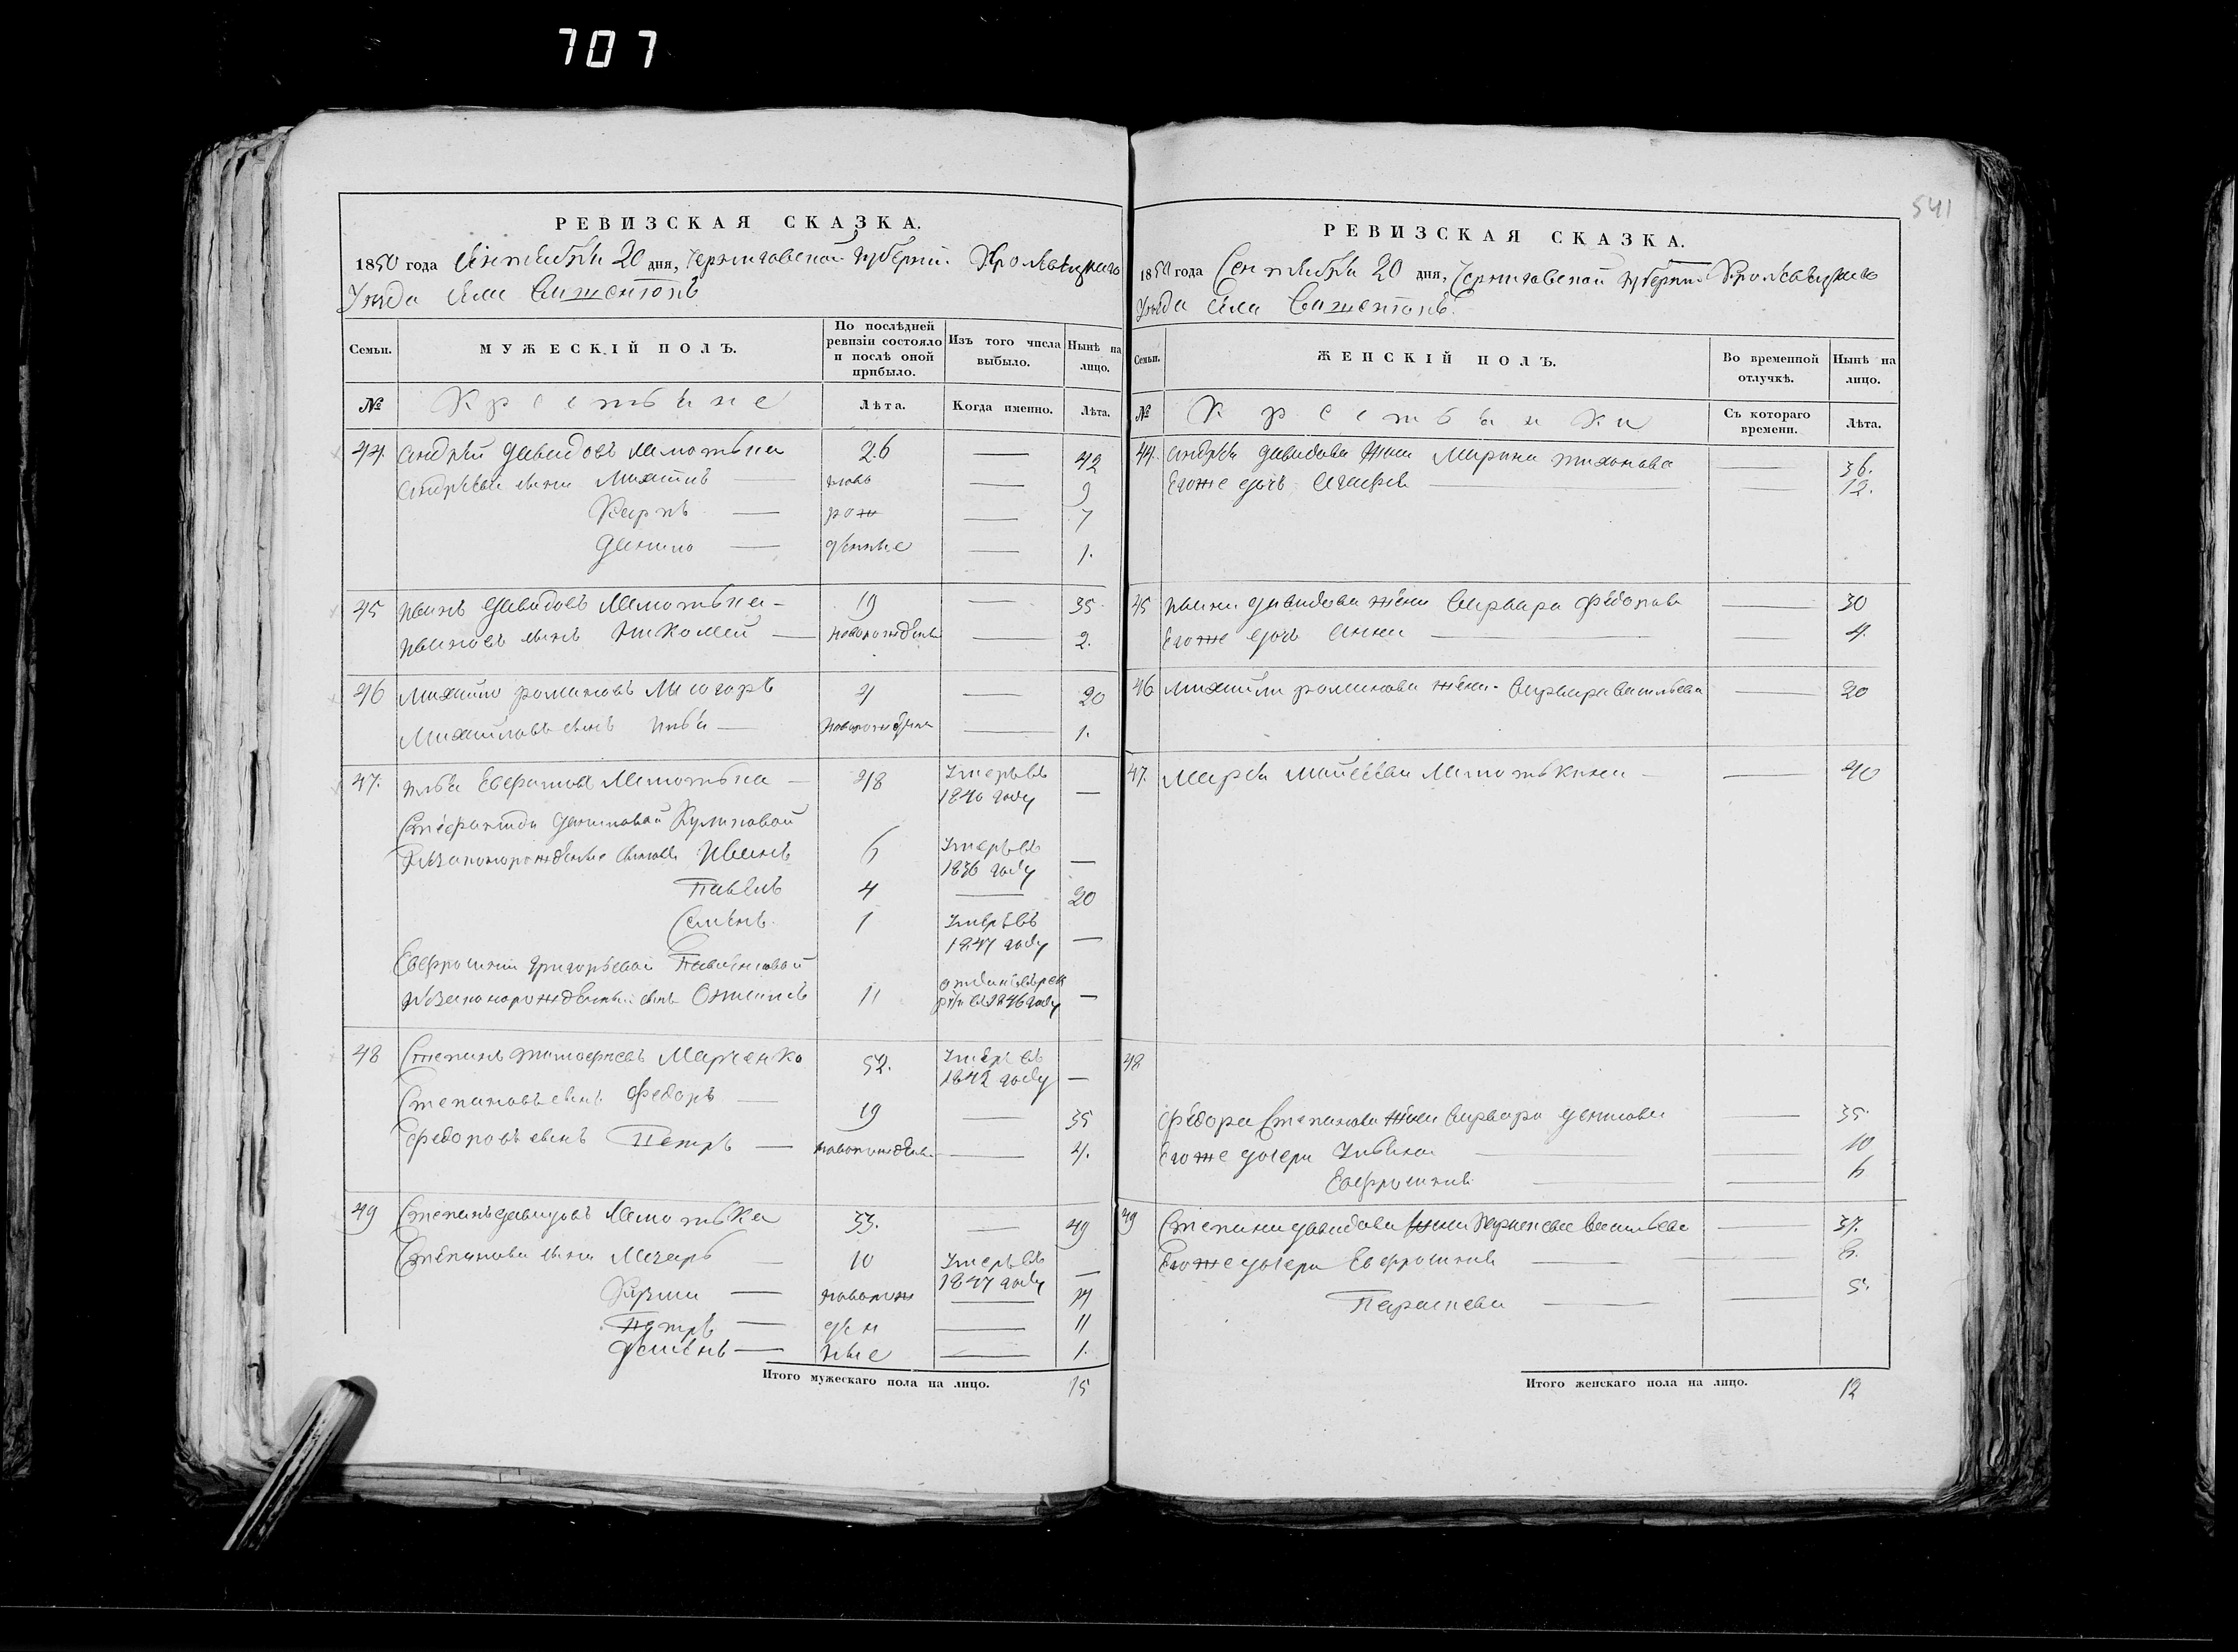 707
541
РЕВИЗСКАЯ СКАЗКА.
1850 года Сентября 20 дня, Черниговской губернии Кролевецкаго
Уезда Села
Семьи.
МУЖЕСКІЙ ПОЛЪ.
По послѣдней ревизіи состояло и послѣ оной прибыло.
Изъ того числа выбыло.
Нынѣ на лицо.
№
Крестьяне
Лѣта.
Когда именно.
Лѣта.
44 Андрей Давидовъ 26 — 42
Андреевы сыны — ново — 9
Карпъ — рож — 7
Данило — денные — 1.
45 Иванъ Давидовъ — 19 — 35
Ивановъ сынъ Николай — новорожден — 2.
46 Михайло Романовъ 4 — 20
Михайловъ сынъ Илья — новорожден — 1.
47. Илья — 48 Умеръ въ 1840 году —
Даниловой Куликовой
незаконорожденные сыновья Иванъ 6 Умеръ въ 1836 году —
Павелъ 4 — 20
Семенъ. 1 Умеръ въ 1847 году —
Евфросинии Григорьевой
незаконорожденный сынъ 11 отданъ въ рекруты въ 1846 году —
48 Степанъ Тимофеевъ Марченко 52. Умеръ въ 1842 году —
Степановъ сынъ Федоръ — 19 — 35
Федоровъ сынъ Петръ — новорожден. — 4.
49 Степанъ Давидовъ 33. — 49
Степановы сыны Лазарь — 10 Умеръ въ 1847 году —
Кузма —новорож — 14
Петръ — ден — 11
Семенъ — ные — 1.
Итого мужескаго пола на лицо. 15
РЕВИЗСКАЯ СКАЗКА.
1850 года Сентября 20 дня, Черниговской губернии Кролевецкаго
Уезда Села
Семьи.
ЖЕНСКІЙ ПОЛЪ.
Во временной отлучкѣ.
Нынѣ на лицо.
№
Крестьянки
Съ котораго времени.
Лѣта.
44. Андрея Давидова жена Марина Тихонова — 36.
Егоже дочь Агафия — — 12.
45 Ивана Давидова жена Варвара Федорова — 30
Егоже дочь Анна — — 4.
46 Михайли Романова жена Варвара Васильева — 20
47. Марья — — 40
48
Федора Степанова жена Варвара Денисова — 35.
Егоже дочери Ульяна — — 10
Евфросиния — — 6
49 Степана Давидова жена Васильева — 37.
Егоже дочери Евфросиния — — 8.
Параскева — — 5.
Итого женскаго пола на лицо. 12